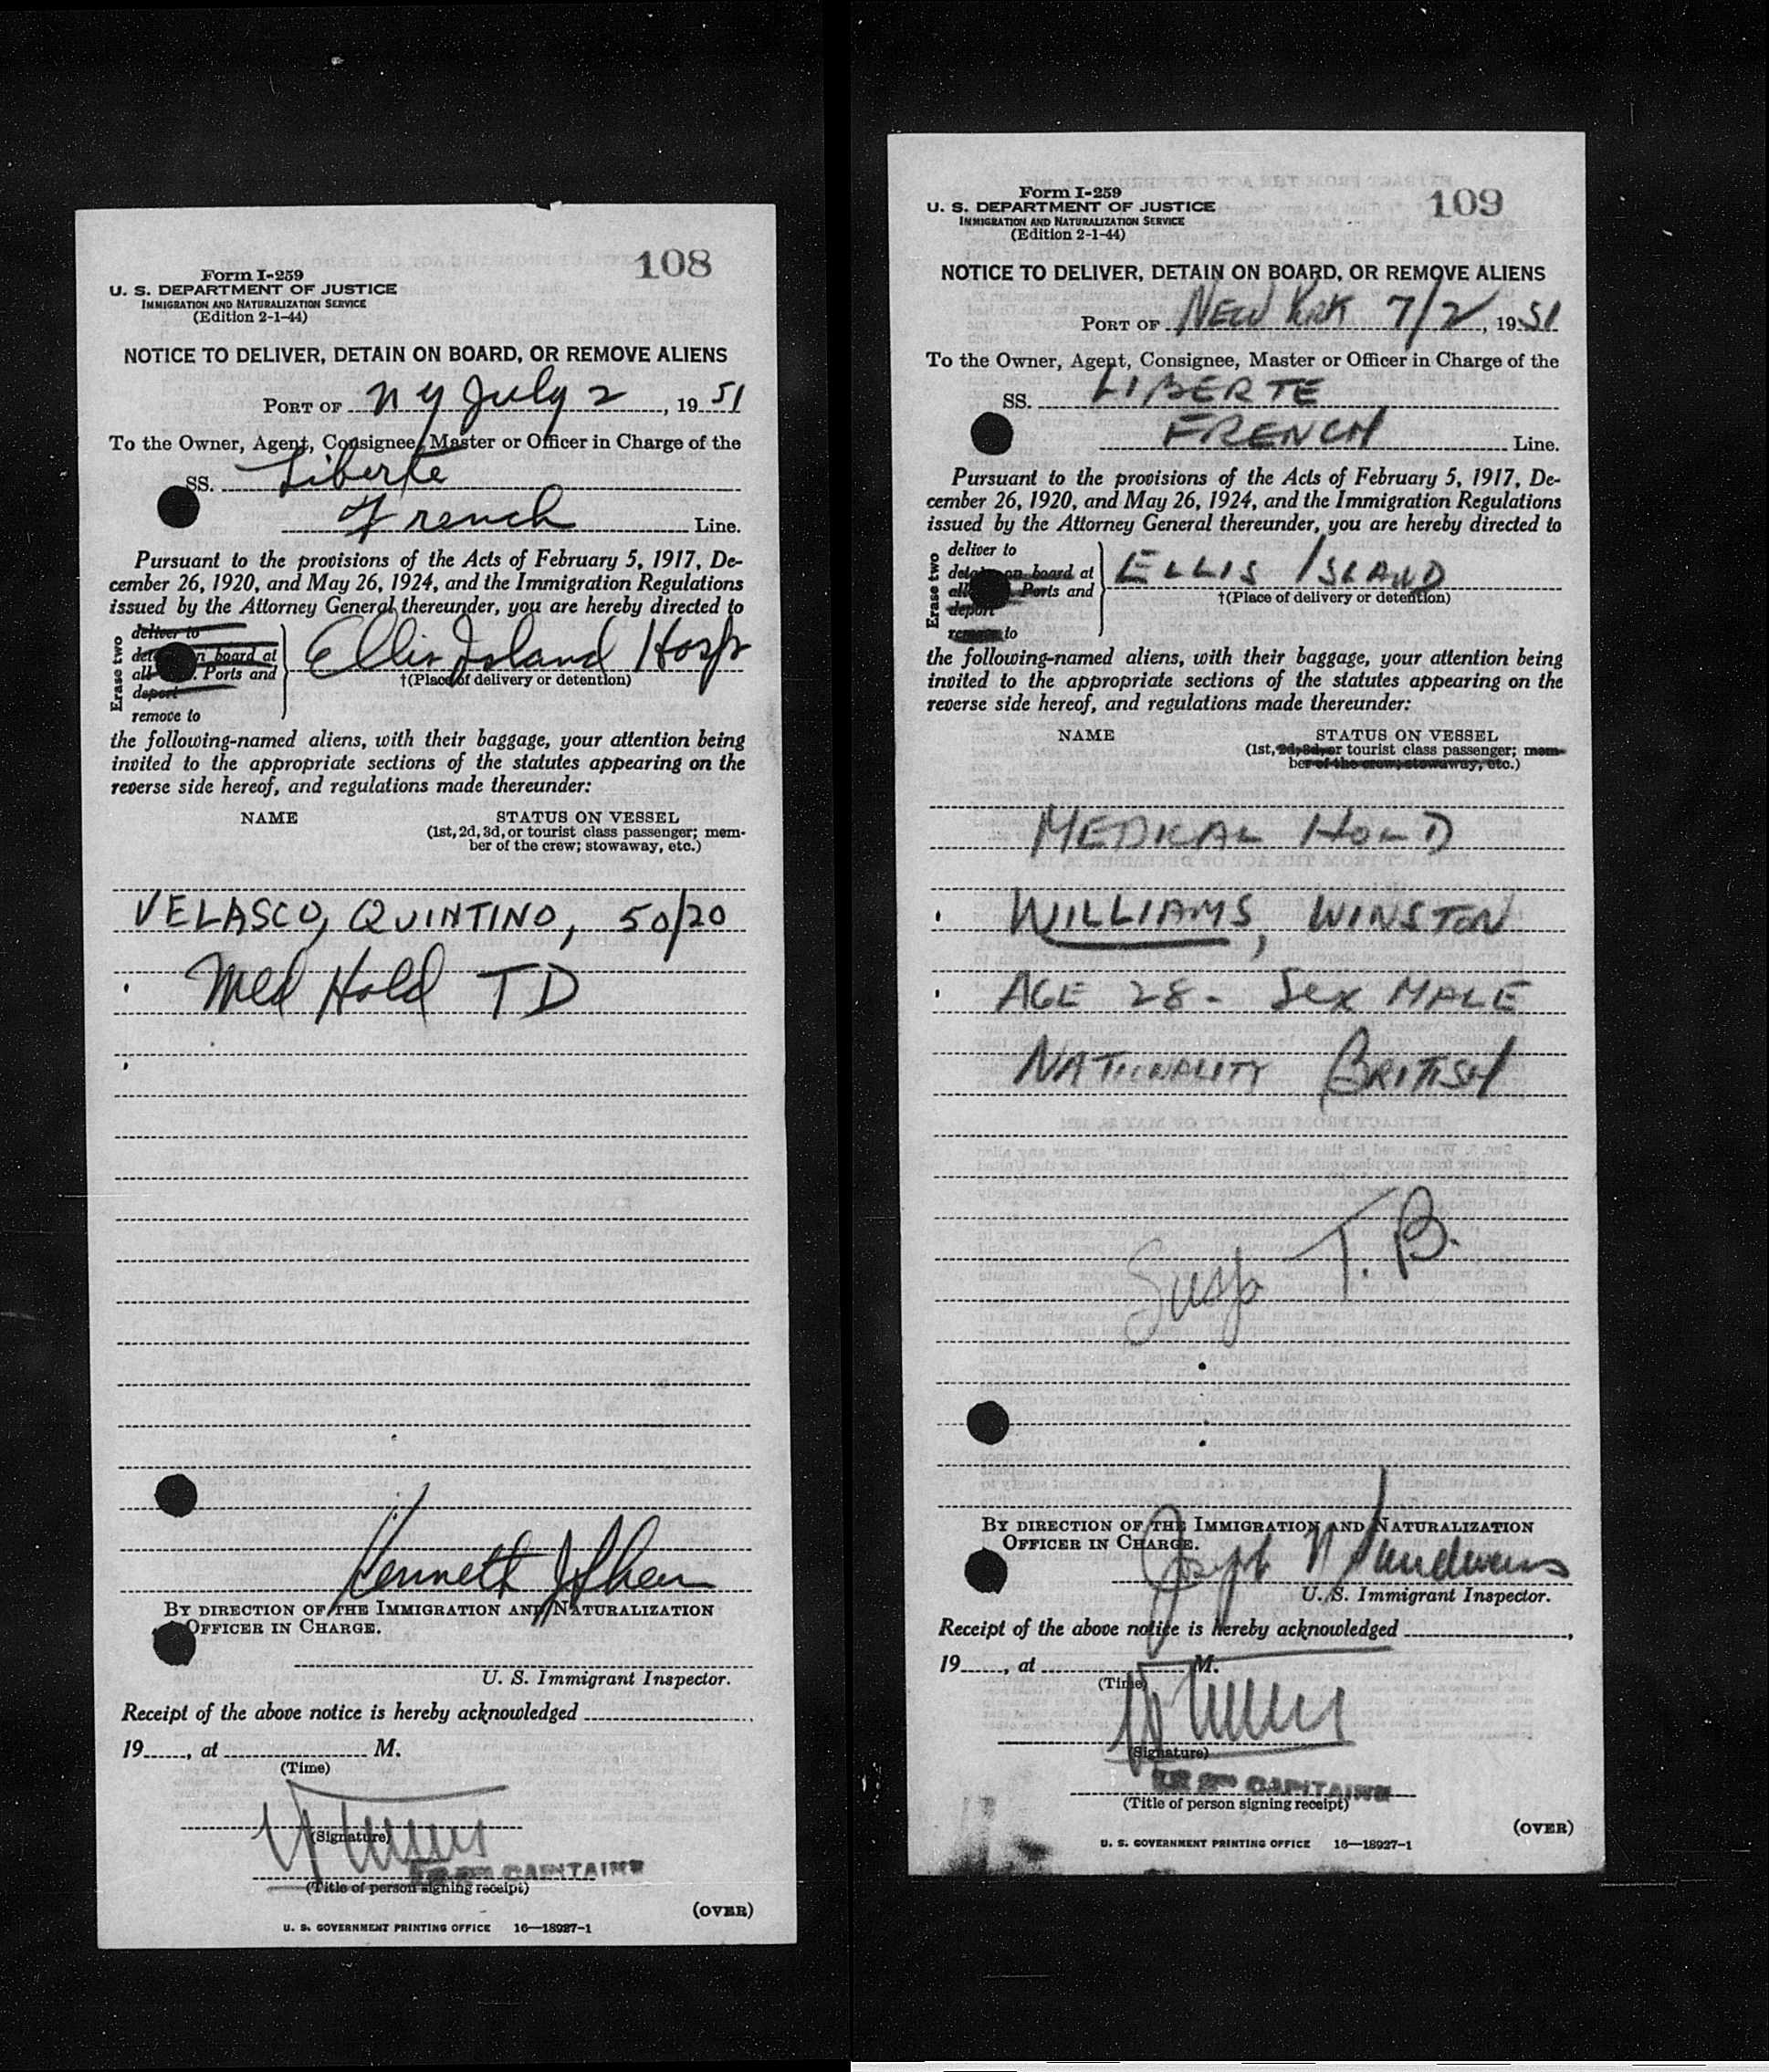 108
Form I-259
U. S. DEPARTMENT OF JUSTICE
IMMIGRATION AND NATURALIZATION SERVICE
(Edition 2-1-44)
NOTICE TO DELIVER, DETAIN ON BOARD, OR REMOVE ALIENS
PORT OF NY July 2, 1951
To the Owner, Agent, Consignee, Master or Officer in Charge of the
SS. Liberte
French Line.
Pursuant to the provisions of the Acts of February 5, 1917, De-
cember 26, 1920, and May 26, 1924, and the Immigration Regulations
issued by the Attorney General thereunder, you are hereby directed to
Erase two
deliver to
board at
Ports and
deport
remove to
Ellis Island Hosp
†(Place of delivery or detention)
the following-named aliens, with their baggage, your attention being
invited to the appropriate sections of the statutes appearing on the
reverse side hereof, and regulations made thereunder:
NAME STATUS ON VESSEL
(1st, 2d, 3d, or tourist class passenger; mem-
ber of the crew; stowaway, etc.)
VELASCO, QUINTINO, 50/20
Med Hold TD
Kenneth J Shea
BY DIRECTION OF THE IMMIGRATION AND NATURALIZATION
OFFICER IN CHARGE.
U. S. Immigrant Inspector.
Receipt of the above notice is hereby acknowledged
19, at M.
(Time)
(Signature)
CAPITAINE
(Title of person signing receipt)
(OVER)
U. S. GOVERNMENT PRINTING OFFICE 16—18927-1
109
Form I-259
U. S. DEPARTMENT OF JUSTICE
IMMIGRATION AND NATURALIZATION SERVICE
(Edition 2-1-44)
NOTICE TO DELIVER, DETAIN ON BOARD, OR REMOVE ALIENS
PORT OF NEW YORK 7/2, 1951
To the Owner, Agent, Consignee, Master or Officer in Charge of the
SS. LIBERTE
FRENCH Line.
Pursuant to the provisions of the Acts of February 5, 1917, De-
cember 26, 1920, and May 26, 1924, and the Immigration Regulations
issued by the Attorney General thereunder, you are hereby directed to
Erase two
deliver to
on board at
Ports and
deport
remove to
ELLIS ISLAND
†(Place of delivery or detention)
the following-named aliens, with their baggage, your attention being
invited to the appropriate sections of the statutes appearing on the
reverse side hereof, and regulations made thereunder:
NAME STATUS ON VESSEL
(1st, 2d, 3d, or tourist class passenger; mem-
ber of the crew; stowaway, etc.)
MEDICAL HOLD
WILLIAMS, WINSTON
AGE 28 - SEX MALE
NATIONALITY BRITISH
Susp T. B.
BY DIRECTION OF THE IMMIGRATION AND NATURALIZATION
OFFICER IN CHARGE.
Joseph
U. S. Immigrant Inspector.
Receipt of the above notice is hereby acknowledged
19, at M.
(Time)
(Signature)
CAPITAINE
(Title of person signing receipt)
(OVER)
U. S. GOVERNMENT PRINTING OFFICE 16—18927-1